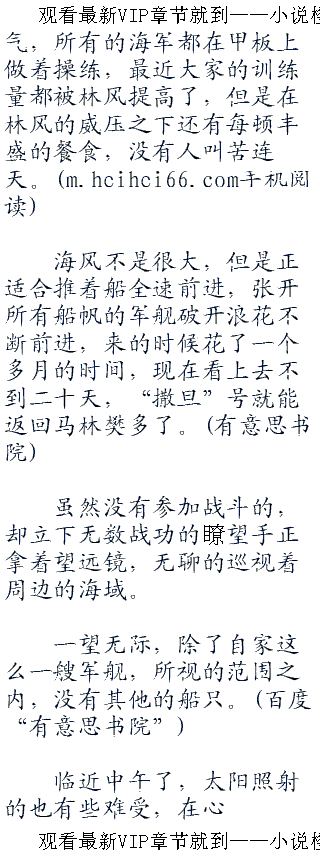 观看最新VIP章节就到——小说
气，所有的海军都在甲板上
做着操练，最近大家的训练
量都被林风提高了，但是在
林风的威压之下还有每顿丰
盛的餐食，没有人叫苦连
天。(m.hcihci66.com手机阅
读)
海风不是很大，但是正
适合推着船全速前进，张开
所有船帆的军舰破开浪花不
断前进，来的时候花了一个
多月的时间，现在看上去不
到二十天，“撒旦”号就能
返回马林樊多了。(有意思书
院)
虽然没有参加战斗的，
却立下无数战功的瞭望手正
拿着望远镜，无聊的巡视着
周边的海域。
一望无际，除了自家这
么一艘军舰，所视的范围之
内，没有其他的船只。(百度
“有意思书院”)
临近中午了，太阳照射
的也有些难受，在心
观看最新VIP章节就到——小说